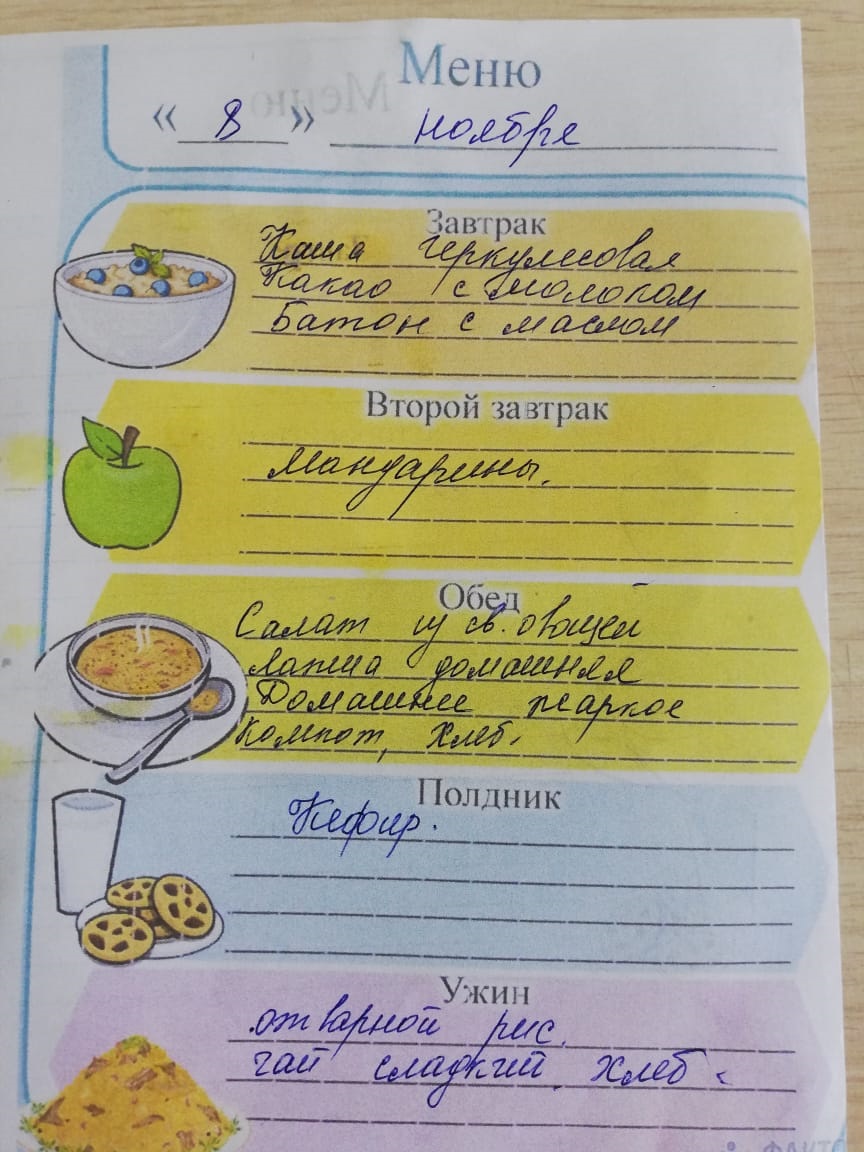 Меню
« 8 » ноября
Завтрак
Каша геркулесовая
Какао с молоком
Батон с маслом
Второй завтрак
Мандарины.
Обед
Салат из св. овощей
Лапша домашняя
Домашнее жаркое
Компот, хлеб.
Полдник
Кефир.
Ужин
отварной рис.
чай сладкий, хлеб.